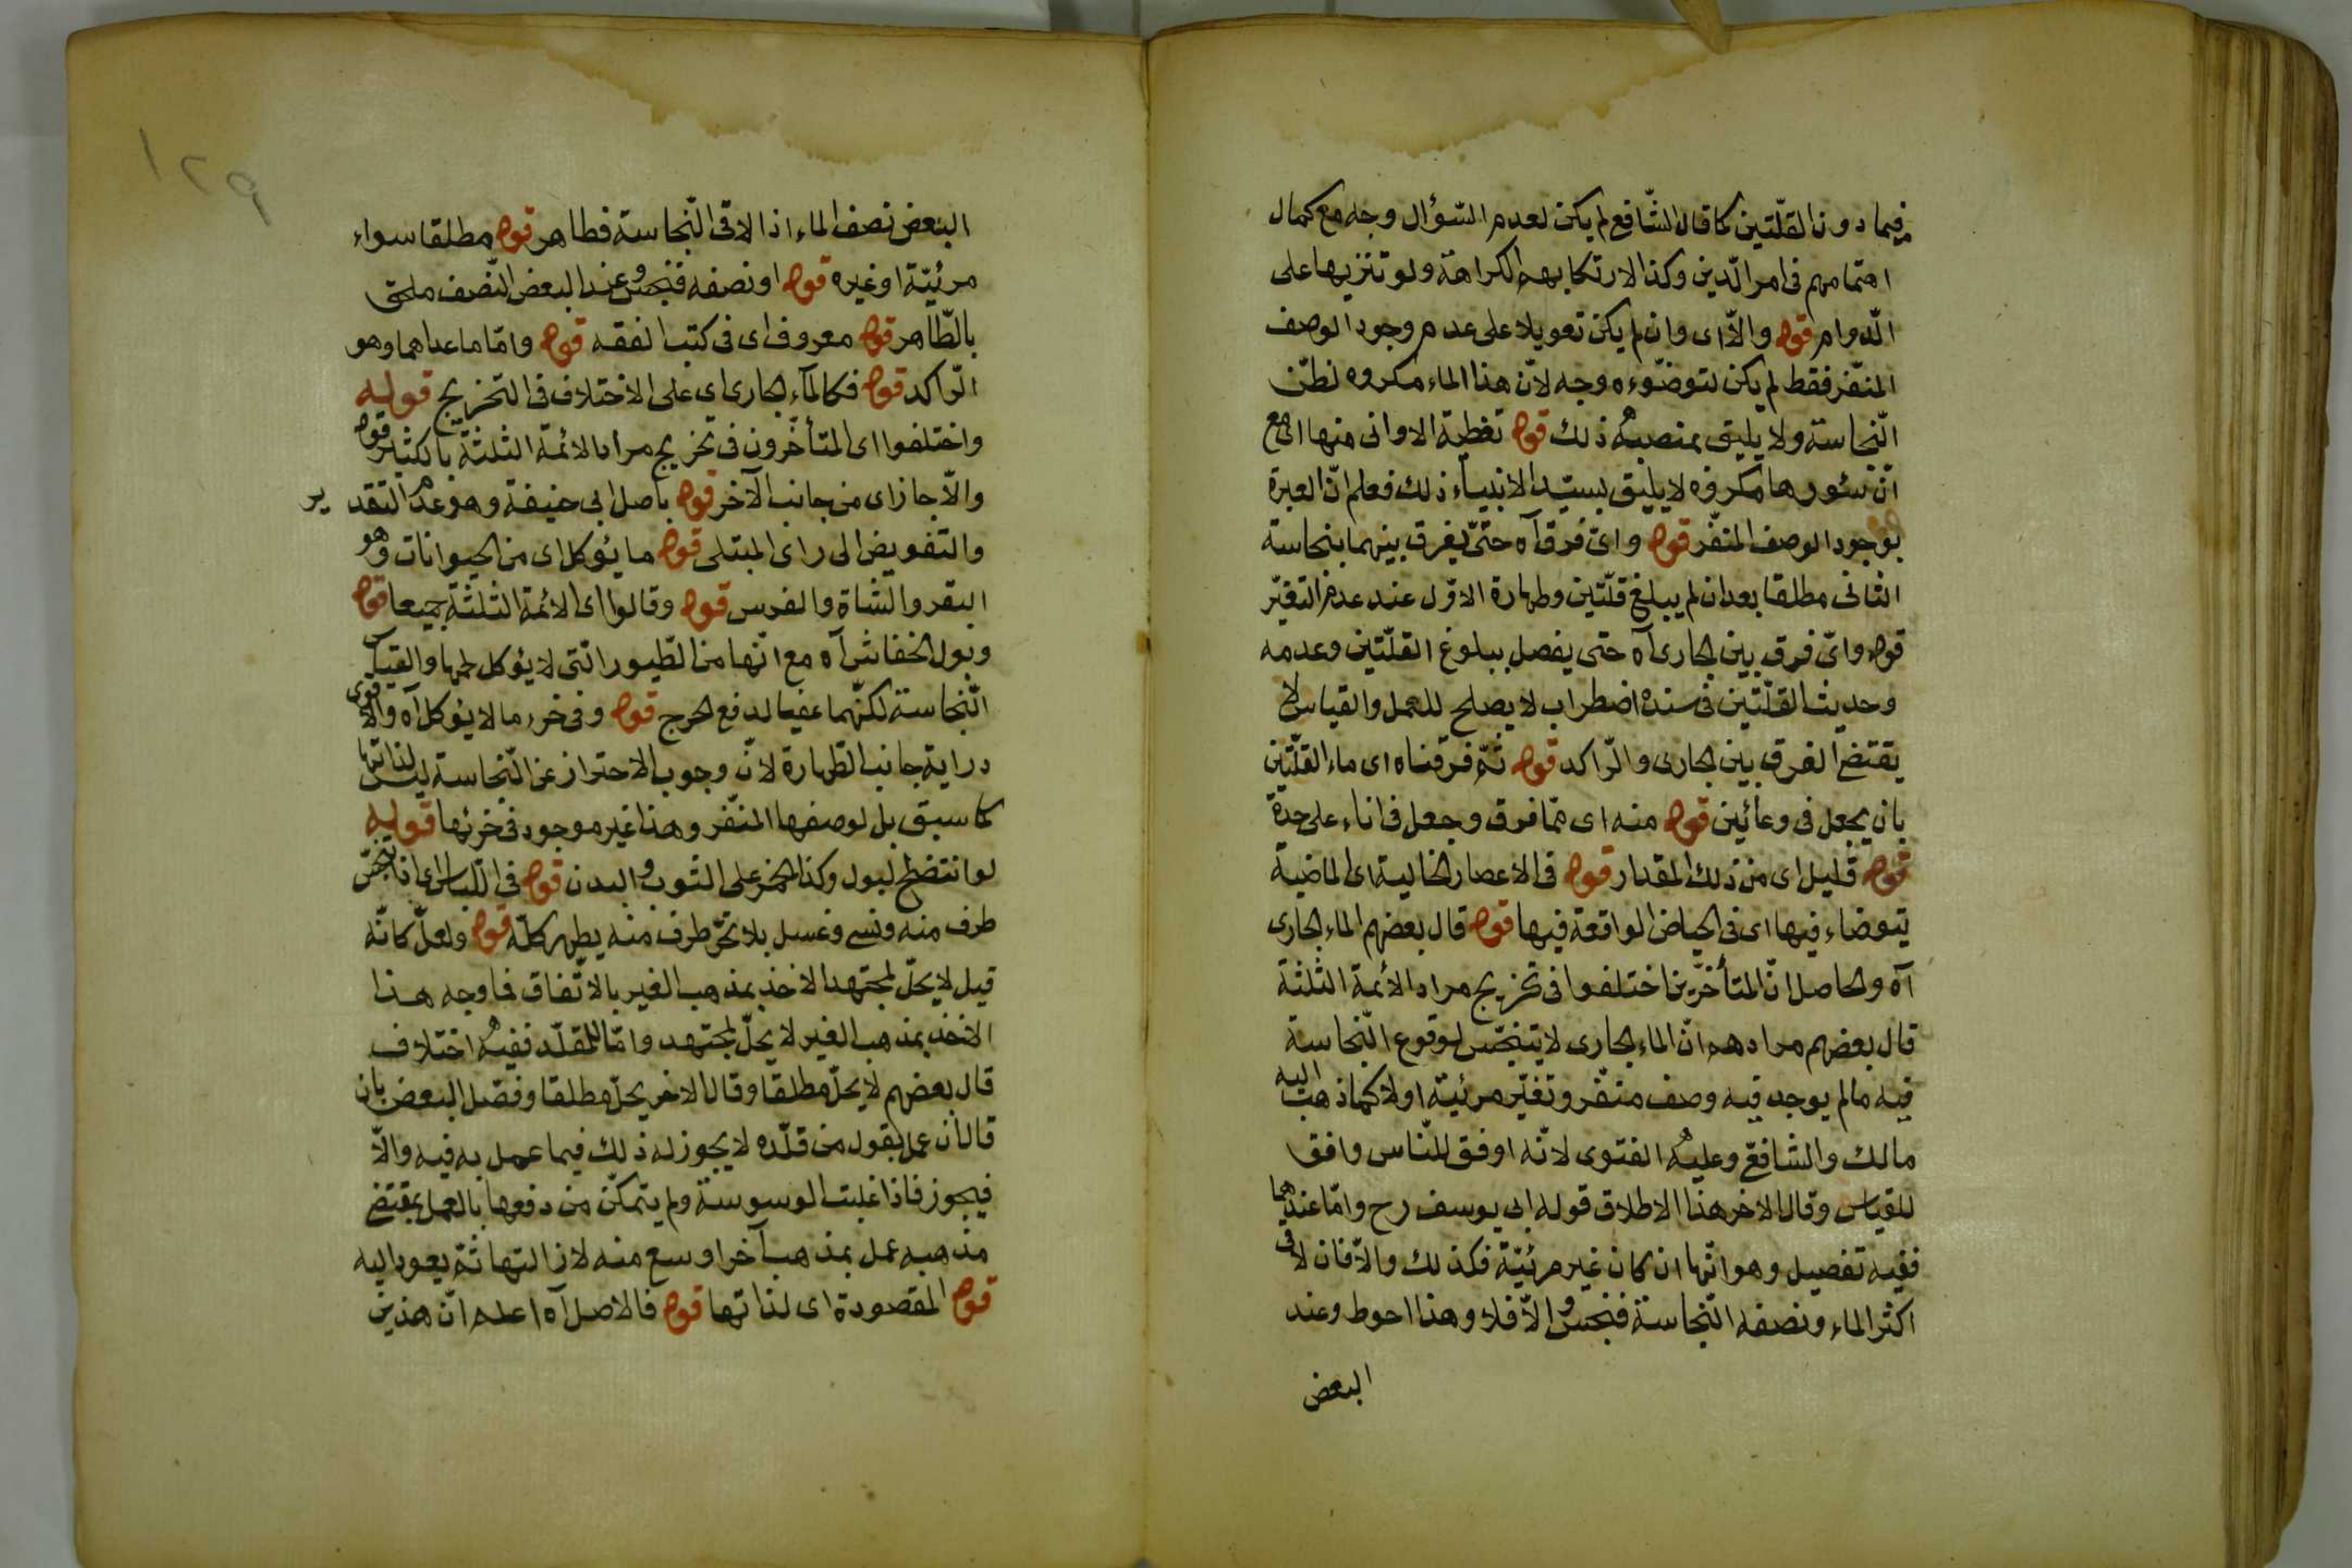 فيما دون القلّتين كما قال الشّافع لم يكن لعدم السّؤال وجه مع كمال
اهتمامهم فى امر الدّين وكذا لارتكابهم الكراهة ولو تنزيها على
الدّوام قوله والّا اى وان لم يكن تعويلا على عدم وجود الوصف
المنفّر فقط لم يكن لتوضّوءه وجه لانّ هذا الماء مكروه لظنّ
النّجاسة ولا يليق بمنصبه ذلك قوله تغطية الاوانى منها اى مع
انّ سئورها مكروه لا يليق بسيّد الانبياء ذلك فعلم انّ العبرة
بوجود الوصف المنفّر قوله واىّ فرق آه حتّى يفرق بينهما بنجاسة
الثانى مطلقا بعد ان لم يبلغ قلّتين وطهارة الاوّل عند عدم التغيّر
قوله واىّ فرق بين الجارى آه حتى يفصل ببلوغ القلّتين وعدمه
وحديث القلّتين فى سنده اضطراب لا يصلح للعمل والقياس لا
يقتضى الفرق بين الجارى والرّاكد قوله ثمّ فرّقناه اى ماء القلّتين
بان يجعل فى وعائين قوله منه اى ممّا فرق وجعل فى اناء على حدة
قوله قليل اى من ذلك المقدار قوله فى الاعصار الخالية اى الماضية
يتوضاء فيها اى فى الحياض الواقعة فيها قوله قال بعضهم الماء الجارى
آه والحاصل انّ المتأخّرين اختلفوا فى تخريج مراد الأئمة الثلثة
قال بعضهم مرادهم انّ الماء الجارى لا يتنجّس لوقوع النّجاسة
فيه مالم يوجد فيه وصف منفّر وتغيّر مرئيّة اولا كما ذهب اليه
مالك والشافعّ وعليه الفتوى لانّه اوفق للنّاس وافق
للقياس وقال الاخر هذا الاطلاق قوله ابى يوسف رح وامّا عندهما
ففيه تفصيل وهو انّها ان كان غير مرئيّة فكذلك والّا فان لاقى
اكثر الماء ونصفه النّجاسة فنجس والّا فلا وهذا احوط وعند
البعض
١٢٩
البعض نصف الماء اذا لاقى النّجاسة فطاهر قوله مطلقا سواء
مرئيّة او غيره قوله او نصفه فنجس وعند البعض النّصف ملحق
بالطّاهر قوله معروف اى فى كتب الفقه قوله وامّا ما عداهما وهو
الرّاكد قوله فكالماء الجارى اى على الاختلاف فى التخريج قوله
واختلفوا اى المتأخّرون فى تخريج مراد الائمّة الثلثة بالكثير قوله
والّا جاز اى من جانب الآخر قوله باصل ابى حنيفة وهو عدم التقدير
والتفويض الى راى المبتلى قوله ما يؤكل اى من الحيوانات وهو
البقر والشّاة والفرس قوله وقالوا اى الائمة الثلثة جميعا قوله
وبول الخفاش آه مع انّها من الطّيور الّتى لا يؤكل لحمها والقياس
النّجاسة لكنّهما عفيا لدفع الحرج قوله وفى خرء ما لا يؤكل آه والاقوى
دراية جانب الطّهارة لانّ وجوب الاحتراز عن النّجاسة ليس لذاتها
كما سبق بل لوصفها المنفّر وهذا غير موجود فى خرئها قوله
لو انتضح البول وكذا الخمر على الثوب والبدن قوله فى اللّباس اى اذا تنجّس
طرف منه ونسى وغسل بلا تحرّ طرف منه يطهر كلّه قوله ولعلّ كانّه
قيل لا يحلّ لمجتهد الاخذ بمذهب الغير بالاتّفاق فما وجه هذا
الاخذ بمذهب الغير لا يحلّ لمجتهد وامّا للمقلّد ففيه اختلاف
قال بعضهم لا يحلّ مطلقا وقال الاخر يحلّ مطلقا وفصّل البعض بان
قال ان عمل بقول من قلّده لا يجوز له ذلك فيما عمل به فيه والّا
فيجوز فاذا غلبت الوسوسة ولم يتمكّن من دفعها بالعمل بمقتضى
مذهبه عمل بمذهب آخر اوسع منه لازالتها ثمّ يعود اليه
قوله المقصودة اى لذاتها قوله فالاصل آه اعلم انّ هذين